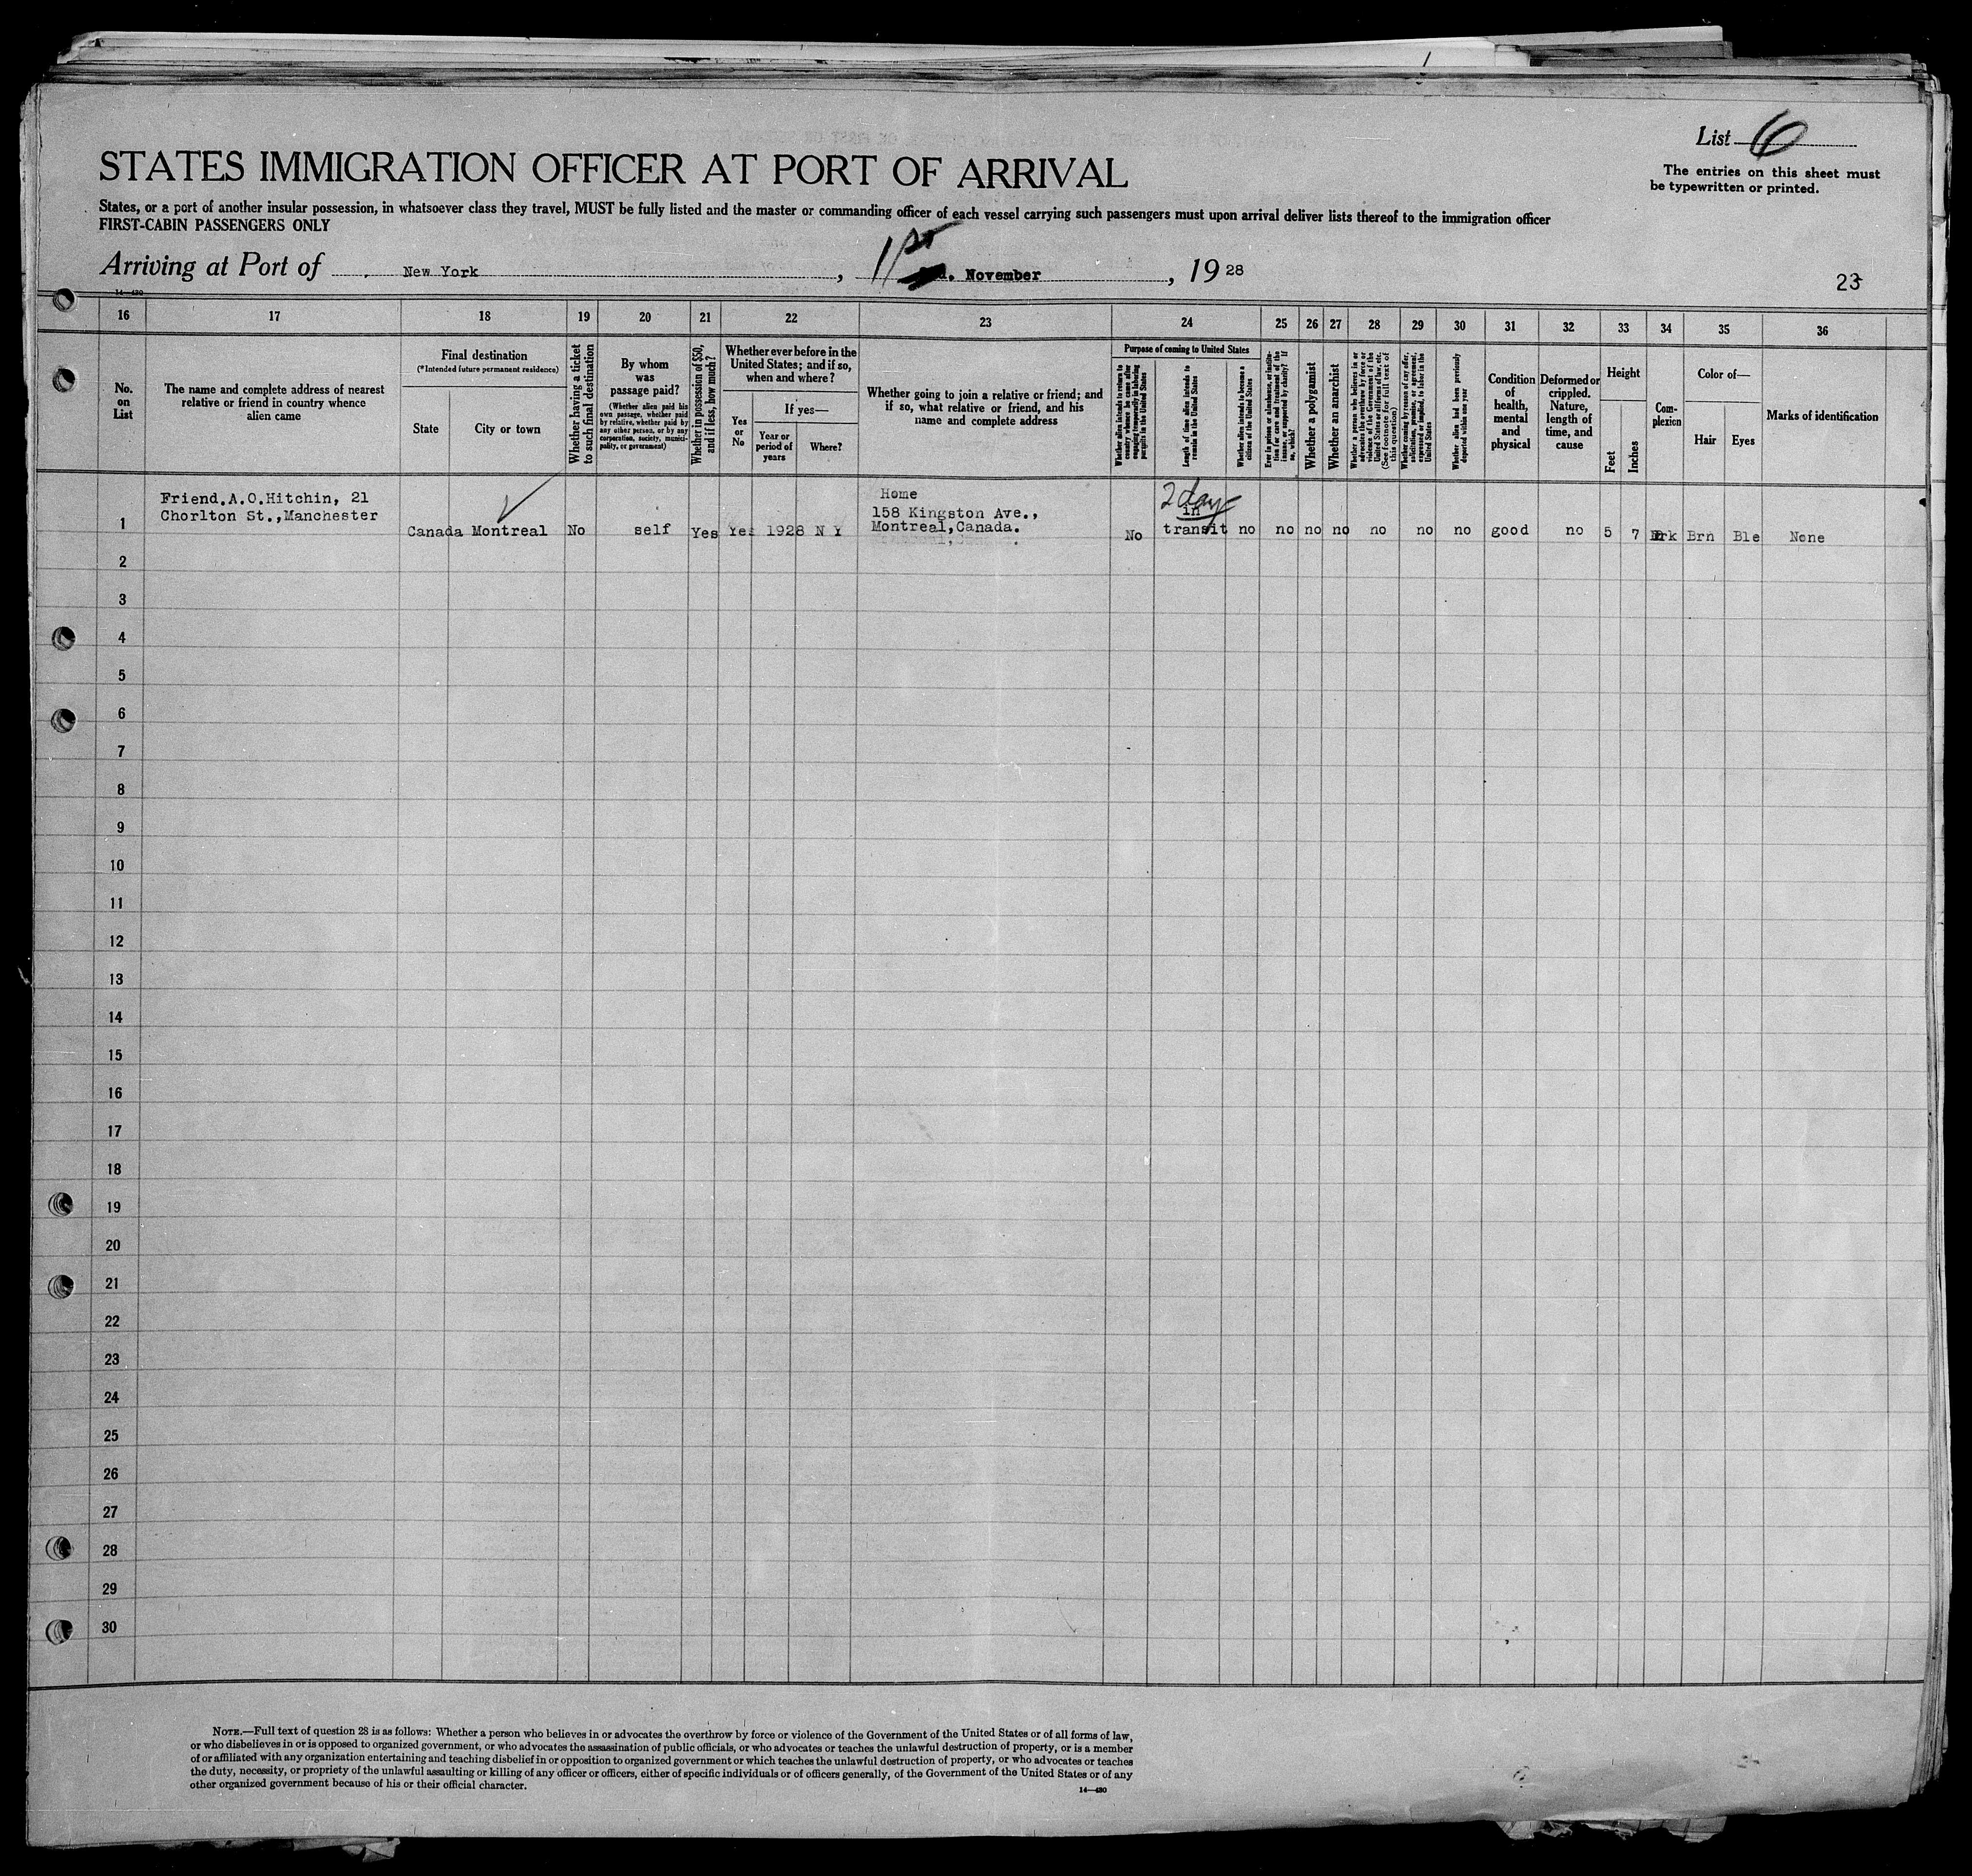 List 6
The entries on this sheet must
be typewritten or printed.
STATES IMMIGRATION OFFICER AT PORT OF ARRIVAL
States, or a port of another insular possession, in whatsoever class they travel, MUST be fully listed and the master or commanding officer of each vessel carrying such passengers must upon arrival deliver lists thereof to the immigration officer
FIRST-CABIN PASSENGERS ONLY
Arriving at Port of New York, 1st November, 1928
23
14—430
16 17 18 19 20 21 22 23 24 25 26 27 28 29 30 31 32 33 34 35 36
No.
on
List
The name and complete address of nearest
relative or friend in country whence
alien came
Final destination
(*Intended future permanent residence)
State
City or town
Whether having a ticket
to such final destination
By whom
was
passage paid?
(Whether alien paid his
own passage, whether paid
by relative, whether paid by
any other person, or by any
corporation, society, munici-
pality, or government)
Whether in possession of $50,
and if less, how much?
Whether ever before in the
United States; and if so,
when and where?
Yes
or
No
If yes—
Year or
period of
years
Where?
Whether going to join a relative or friend; and
if so, what relative or friend, and his
name and complete address
Purpose of coming to United States
Whether alien intends to return to
country whence he came after
engaging temporarily in laboring
pursuits in the United States
Length of time alien intends to
remain in the United States
Whether alien intends to become a
citizen of the United States
Ever in prison or almshouse, or institu-
tion for care and treatment of the
insane, or supported by charity? If
so, which?
Whether a polygamist
Whether an anarchist
Whether a person who believes in or
advocates the overthrow by force or
violence of the Government of the
United States or all forms of law, etc.
(See footnote for full text of
this question)
Whether coming by reason of any offer,
solicitation, promise, or agreement,
expressed or implied, to labor in the
United States
Whether alien had been previously
deported within one year
Condition
of
health,
mental
and
physical
Deformed or
crippled.
Nature,
length of
time, and
cause
Height
Feet
Inches
Com-
plexion
Color of—
Hair
Eyes
Marks of identification
1
Friend.A.O.Hitchin, 21
Chorlton St.,Manchester
Canada Montreal No self Yes Yes 1928 N Y
Home
158 Kingston Ave.,
Montreal,Canada.
No
2 day
in
transit no no no no no no no good no 5 7 Drk Brn Ble None
2
3
4
5
6
7
8
9
10
11
12
13
14
15
16
17
18
19
20
21
22
23
24
25
26
27
28
29
30
NOTE.—Full text of question 28 is as follows: Whether a person who believes in or advocates the overthrow by force or violence of the Government of the United States or of all forms of law,
or who disbelieves in or is opposed to organized government, or who advocates the assassination of public officials, or who advocates or teaches the unlawful destruction of property, or is a member
of or affiliated with any organization entertaining and teaching disbelief in or opposition to organized government or which teaches the unlawful destruction of property, or who advocates or teaches
the duty, necessity, or propriety of the unlawful assaulting or killing of any officer or officers, either of specific individuals or of officers generally, of the Government of the United States or of any
other organized government because of his or their official character.
14—430